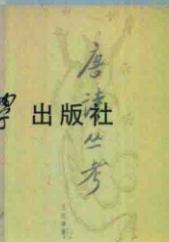 唐诗丛考
學 出版社